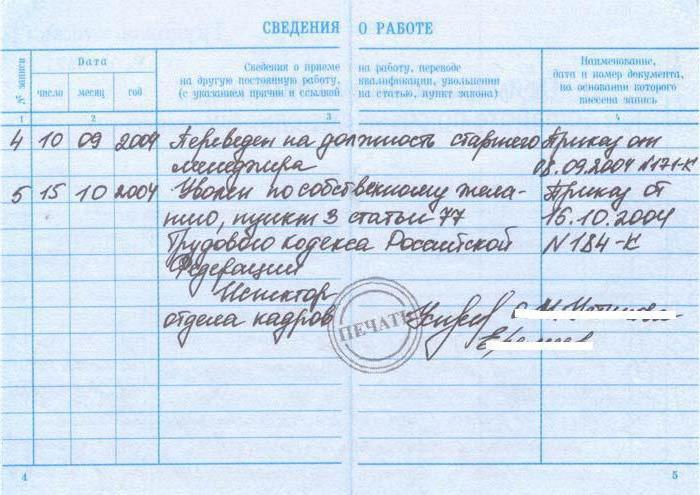 СВЕДЕНИЯ О РАБОТЕ
№ записи
Дата
Сведения о приеме на работу, переводе
на другую постоянную работу, квалификации, увольнении
(с указанием причин и ссылкой на статью, пункт закона)
Наименование,
дата и номер документа,
на основании которого
внесена запись
число месяц год
1 2 3 4
4 10 09 2004 Переведен на должность старшего Приказ от
менеджера 08.09.2004 №171-К
5 15 10 2004 Уволен по собственному жела- Приказ от
нию, пункт 3 статьи 77 15.10.2004
Трудового кодекса Российской N184-К
Федерации
Испектор
отдела кадров
ПЕЧАТЬ
4 5